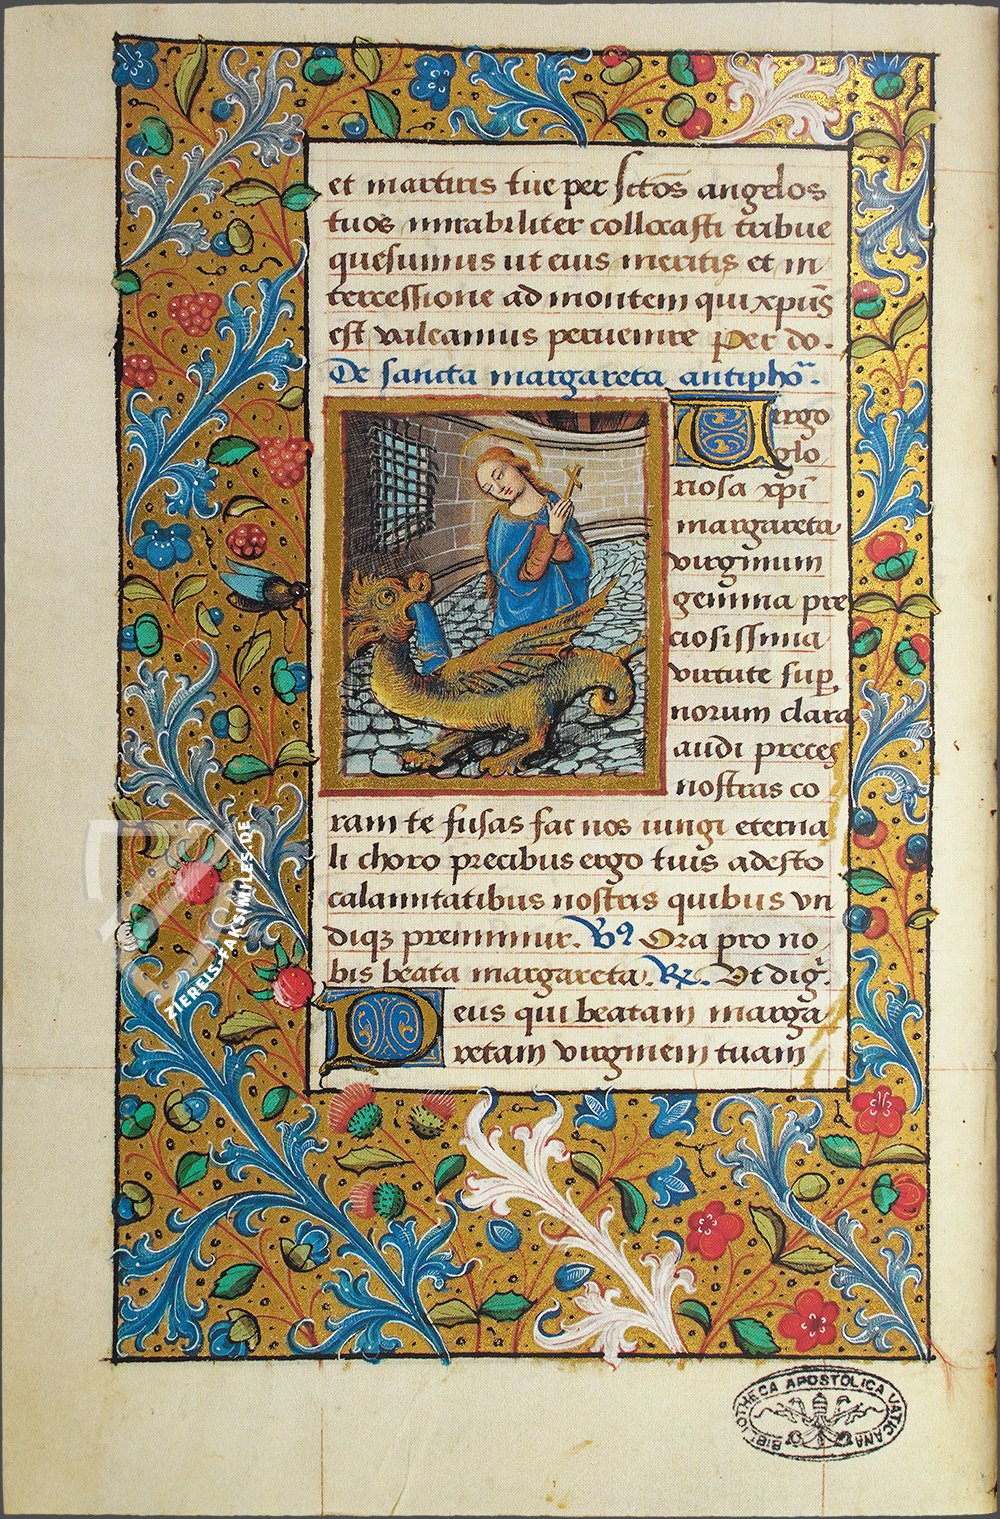 et martiris tue per sctōs angelos
tuos mirabiliter collocasti tribue
quesumus ut eius meritis et in
tercessione ad montem qui xpūs
est valeamus peruenire Per do.
De sancta margareta antiphō.
Virgo
glo
riosa xpī
margareta
virginum
gemma pre
ciosissima
virtute sup,
norum clara
audi preces
nostras co
ram te fusas fac nos iungi eterna
li choro precibus ergo tuis adesto
calamitatibus nostris quibus vn
diqz premimur. V9 Ora pro no
bis beata margareta. R. Vt dig.
Deus qui beatam marga
retam virginem tuam
ZIEREIS-FAKSIMILES.DE
BIBLIOTHECA APOSTOLICA VATICANA